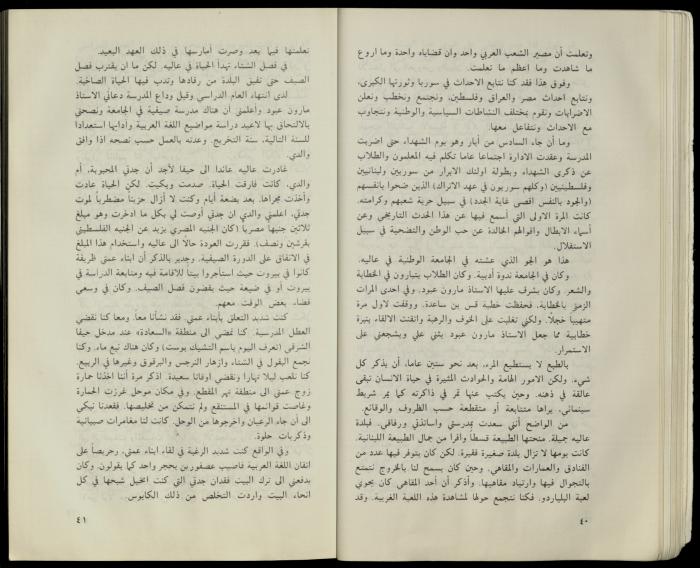 وتعلمت أن مصير الشعب العربي واحد وان قضاياه واحدة وما اروع
ما شاهدت وما اعظم ما تعلمت.
وفوق هذا فقد كنا نتابع الاحداث في سوريا وثورتها الكبرى،
ونتابع احداث مصر والعراق وفلسطين، ونجتمع ونخطب ونعلن
الاضرابات ونقوم بمختلف النشاطات السياسية والوطنية ونتجاوب
مع الاحداث ونتفاعل معها.
وما أن جاء السادس من أيار وهو يوم الشهداء حتى اضربت
المدرسة وعقدت الادارة اجتماعا عاما تكلم فيه المعلمون والطلاب
عن ذكرى الشهداء وبطولة اولئك الابرار من سوريين ولبنانيين
وفلسطينيين (وكلهم سوريون في عهد الاتراك) الذين ضحوا بانفسهم
(والجود بالنفس اقصى غاية الجود) في سبيل حرية شعبهم وكرامته.
كانت المرة الاولى التي أسمع فيها عن هذا الحدث التاريخي وعن
أسماء الابطال واقوالهم الخالدة عن حب الوطن والتضحية في سبيل
الاستقلال.
هذا هو الجو الذي عشته في الجامعة الوطنية في عاليه.
وكان في الجامعة ندوة أدبية. وكان الطلاب يتبارون في الخطابة
والشعر. وكان يشرف عليها الاستاذ مارون عبود. وفي احدى المرات
الزمني بالخطابة. فحفظت خطبة قس بن ساعدة. ووقفت لاول مرة
متهيبا خجلا. ولكني تغلبت على الخوف والرهبة واتقنت الالقاء بنبرة
خطابية مما جعل الاستاذ مارون عبود يثني علي ويشجعني على
الاستمرار.
بالطبع لا يستطيع المرء، بعد نحو ستين عاما، أن يذكر كل
شيء. ولكن الامور الهامة والحوادث المثيرة في حياة الانسان تبقى
عالقة في ذهنه. وحين يكتب عنها تمر في ذاكرته كما يمر شريط
سينمائي، يراها متتابعة أو متقطعة حسب الظروف والوقائع.
من الواضح أنني سعدت بمدرستي واساتذتي ورفاقي. فبلدة
عاليه جميلة. منحتها الطبيعة قسطا وافرا من جمال الطبيعة اللبنانية.
كانت يومها لا تزال بلدة صغيرة فقيرة. لكن كان يتوفر فيها عدد من
الفنادق والعمارات والمقاهي. وحين كان يسمح لنا بالخروج نتمتع
بالتجوال فيها وارتياد مقاهيها. وأذكر أن أحد المقاهي كان يحوي
لعبة البلياردو. فكنا نتجمع حولها لمشاهدة هذه اللعبة الغريبة. وقد
٤٠
تعلمتها فيما بعد وصرت أمارسها في ذلك العهد البعيد.
في فصل الشتاء تهدأ الحياة في عاليه. لكن ما ان يقترب فصل
الصيف حتى تفيق البلدة من رقادها وتدب فيها الحياة الصاخبة.
لدى انتهاء العام الدراسي وقبل وداع المدرسة دعاني الاستاذ
مارون عبود واعلمني أن هناك مدرسة صيفية في الجامعة ونصحني
بالالتحاق بها لاعيد دراسة مواضيع اللغة العربية وآدابها استعدادا
للسنة التالية، سنة التخرج. وعدته بالعمل حسب نصحه اذا وافق
والدي.
غادرت عاليه عائدا الى حيفا لأجد أن جدتي المحبوبة، أم
والدي، كانت فارقت الحياة. صدمت وبكيت. ولكن الحياة عادت
وأخذت مجراها. بعد بضعة أيام وكنت لا أزال حزينا مضطربا لموت
جدتي، اعلمني والدي ان جدتي أوصت لي بكل ما ادخرت وهو مبلغ
ثلاثين جنيها مصريا (كان الجنيه المصري يزيد عن الجنيه الفلسطيني
بقرشين ونصف). فقررت العودة حالا الى عاليه واستخدام هذا المبلغ
في الانفاق على الدورة الصيفية. وجدير بالذكر أن ابناء عمتي ظريفة
كانوا في بيروت حيث استأجروا بيتا للاقامة فيه ومتابعة الدراسة في
بيروت أو في ضيعة حيث يقضون فصل الصيف. وكان في وسعي
قضاء بعض الوقت معهم.
كنت شديد التعلق بأبناء عمتي. فقد نشأنا معا. ومعا كنا نقضي
العطل المدرسية. كنا نمضي الى منطقة «السعادة» عند مدخل حيفا
الشرقي (تعرف اليوم باسم التشيك بوست) وكان هناك نبع ماء. وكنا
نجمع البقول في الشتاء وازهار النرجس والبرقوق وغيرها في الربيع.
كنا نلعب ليلا نهارا ونقضي اوقاتا سعيدة. اذكر مرة أننا اخذنا حمارة
زوج عمتي الى منطقة نهر المقطع. وفي مكان موحل غرزت الحمارة
وغاصت قوائمها في المستنقع ولم نتمكن من تخليصها. فقعدنا نبكي
الى أن جاء الرعيان واخرجوها من الوحل. كانت لنا مغامرات صبيانية
وذكريات حلوة.
وفي الواقع كنت شديد الرغبة في لقاء ابناء عمتي، وحريصا على
اتقان اللغة العربية فاصيب عصفورين بحجر واحد كما يقولون. وكان
يدفعني الى ترك البيت فقدان جدتي التي كنت اتخيل شبحها في كل
انحاء البيت واردت التخلص من ذلك الكابوس.
٤١